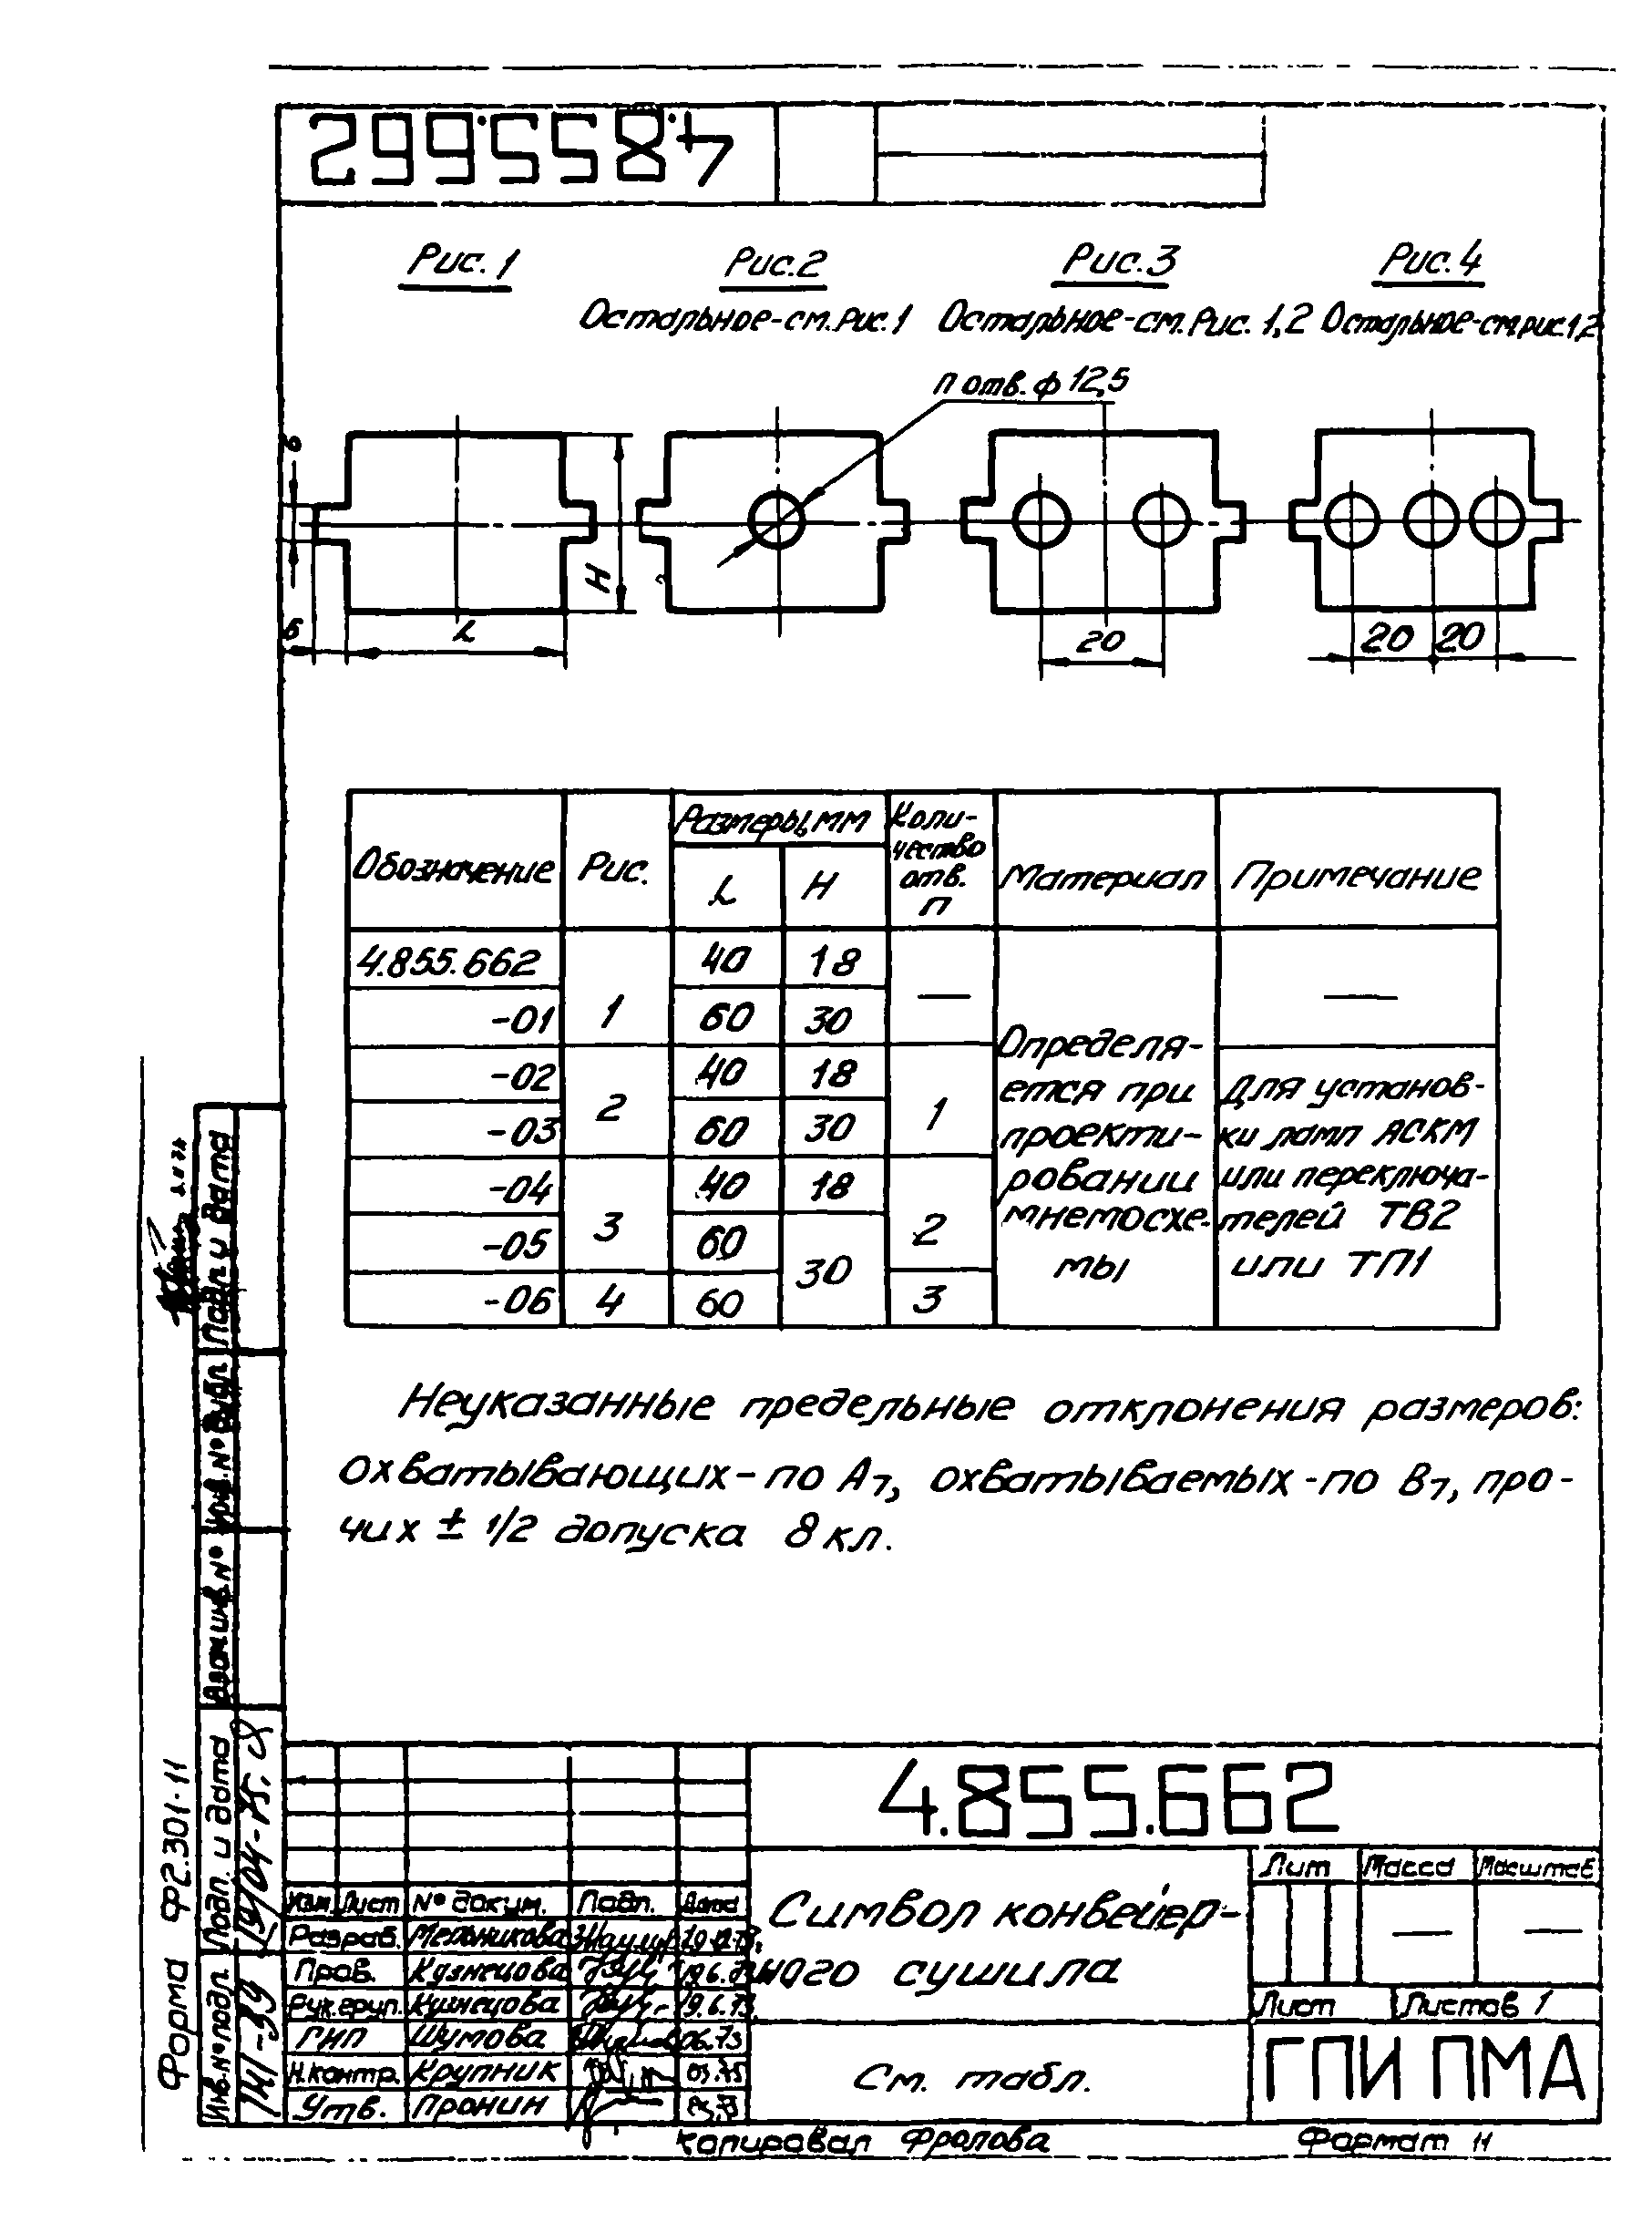 4.855.662
Рис. 1
Рис. 2
Рис. 3
Рис. 4
Остальное-см. Рис. 1
Остальное-см. Рис. 1, 2
Остальное-см рис 1,2
п отв. ф 12,5
6
H
6
L
20
20 20
Обозначение Рис. Размеры, мм Коли-
чество
отв.
п Материал Примечание
L H
4.855.662 1 40 18 — —
-01 60 30
-02 2 40 18 1
-03 60 30
-04 3 40 18 2
-05 60 30
-06 4 60 3
Определя-
ется при
проекти-
ровании
мнемосхе-
мы
Для установ-
ки ламп АСКМ
или переключа-
телей ТВ2
или ТП1
Неуказанные предельные отклонения размеров:
охватывающих - по А7, охватываемых - по В7, про-
чих ± 1/2 допуска 8 кл.
Подп и дата
Инв. № дубл
Взам инв №
Подп. и дата
Инв. № подл.
Форма Ф2.301-11
4.855.662
Изм. Лист № докум. Подп. Дата
Разраб. Мельникова
Пров. Кузнецова
Рук. груп. Кузнецова 19.6.73
ГИП Шумова 06.73
Н.контр. Крупник
Утв. Пронин
Символ конвейер-
ного сушила
См. табл.
Лит Масса Масштаб
— —
Лист Листов 1
ГПИ ПМА
Копировал Фролова
Формат 11